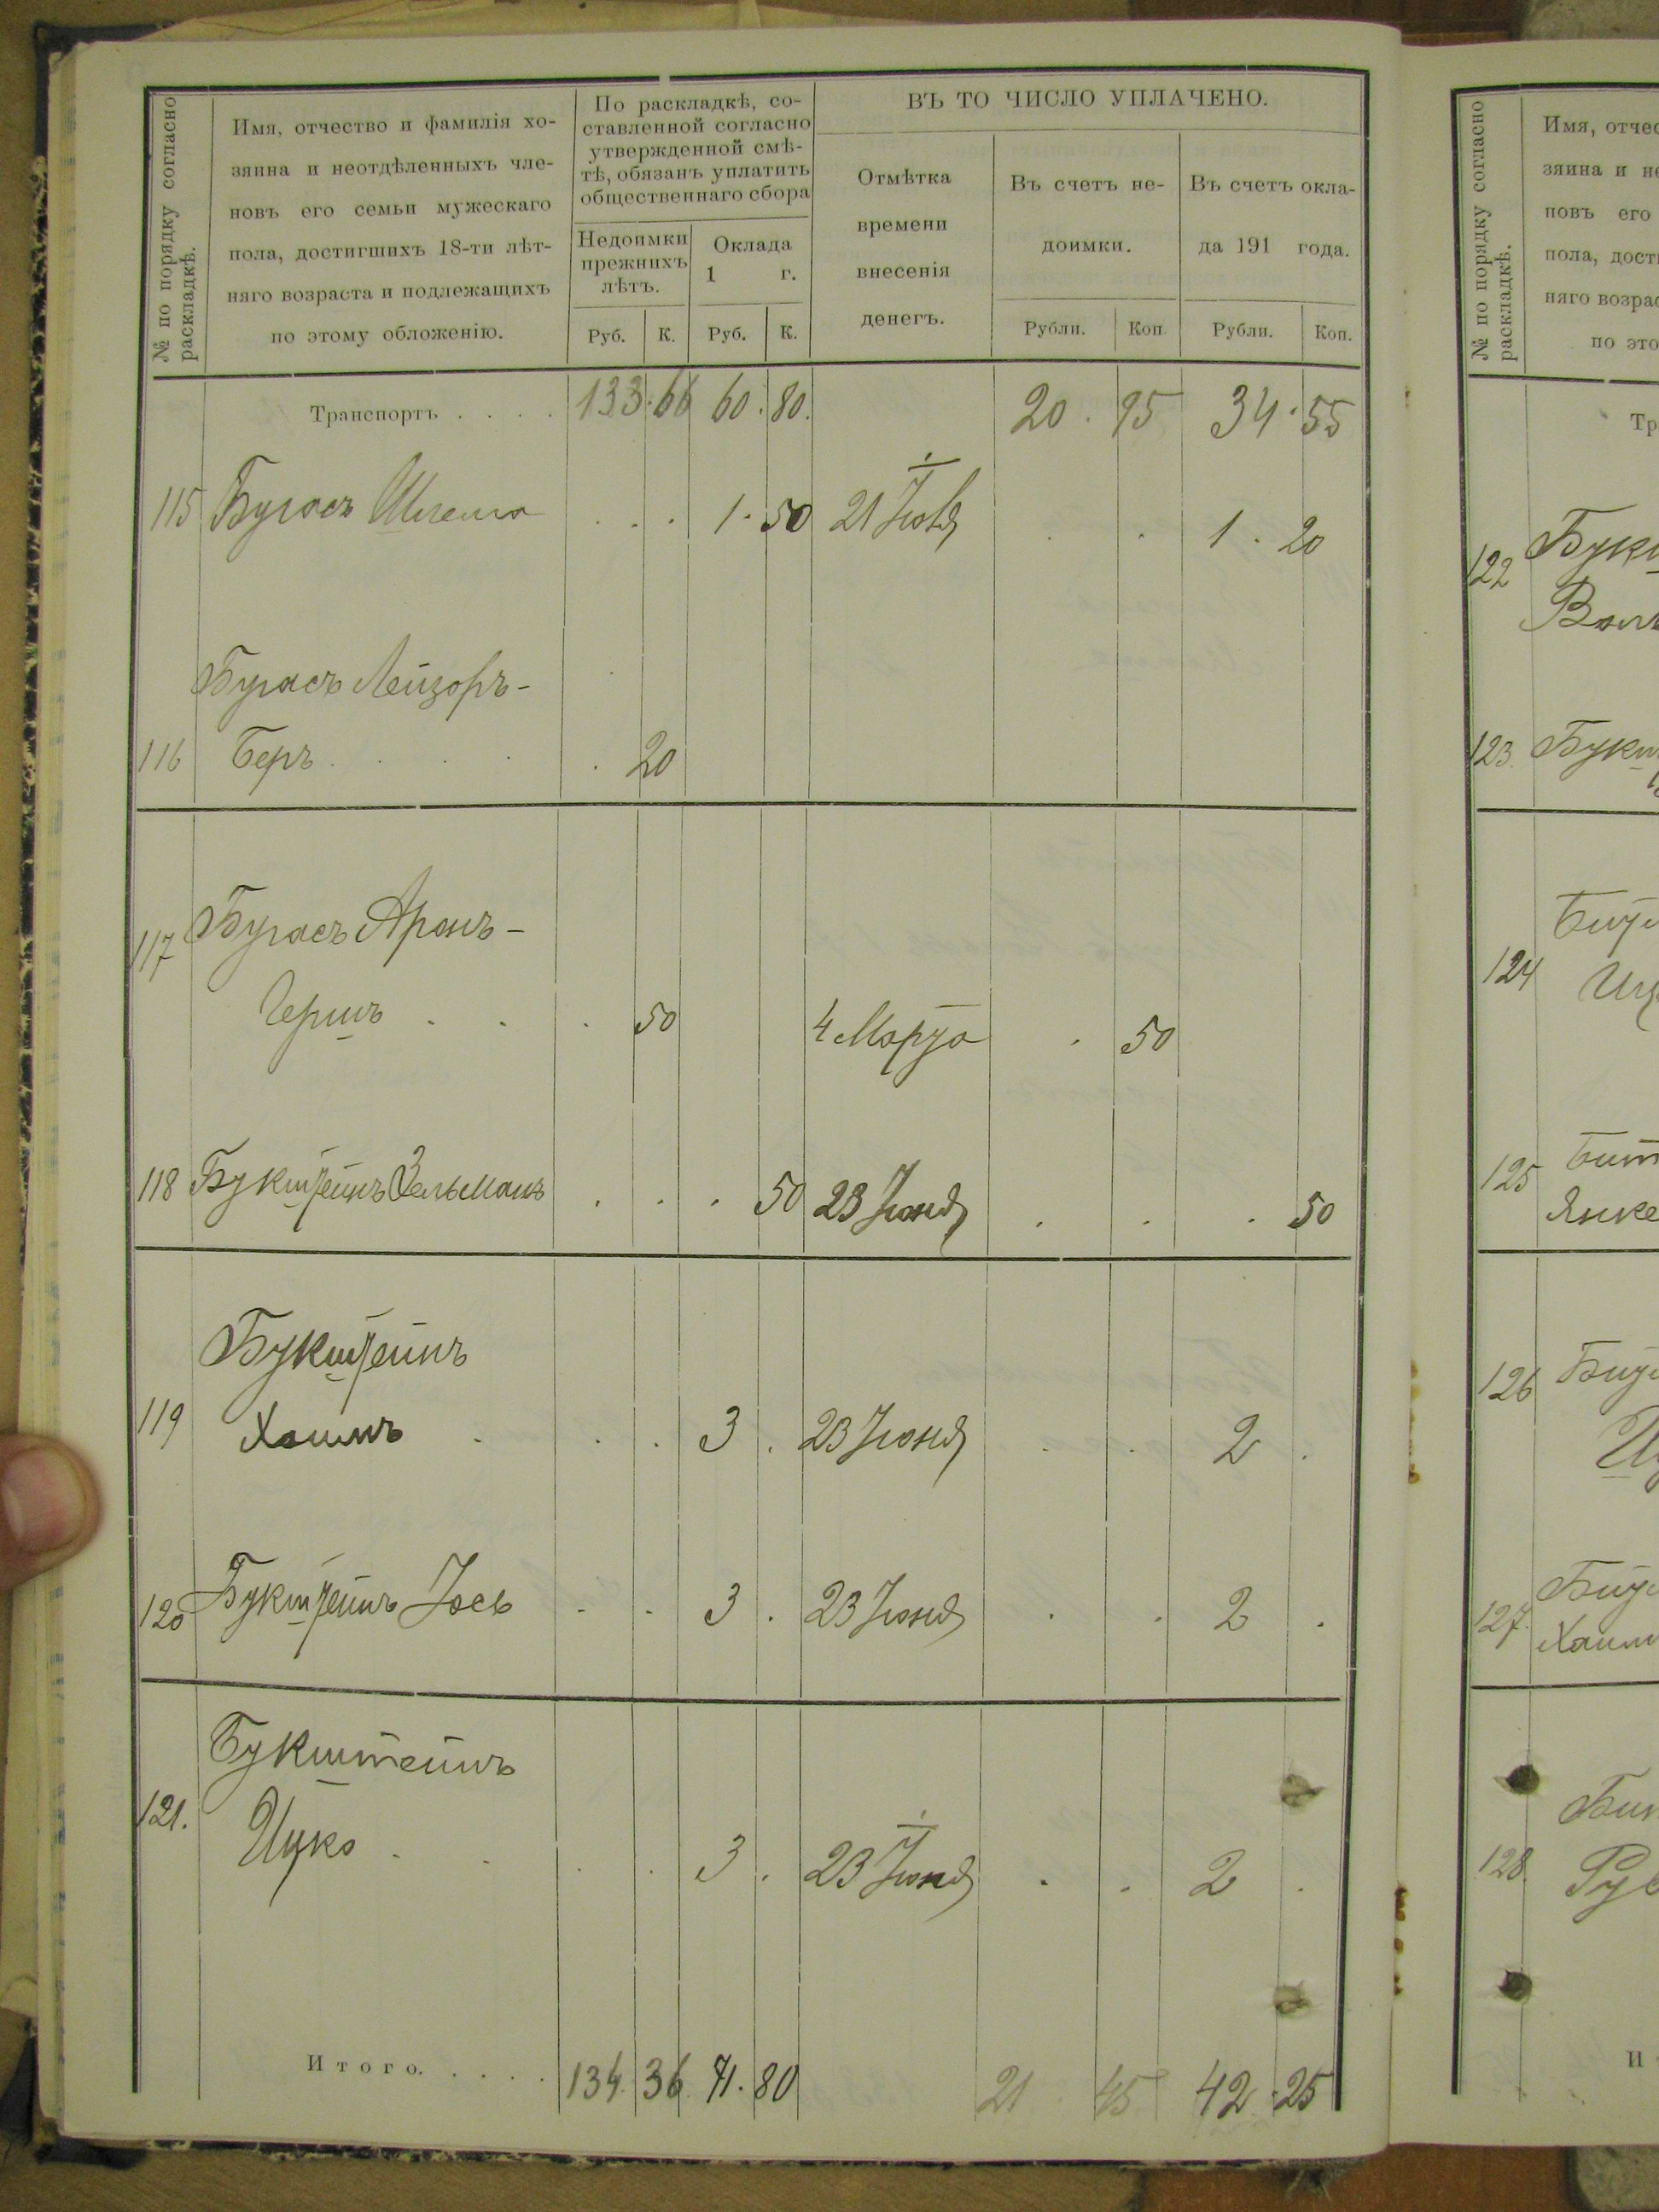 № по порядку согласно
раскладкѣ.
Имя, отчество и фамилія хо-
зяина и неотдѣленныхъ чле-
новъ его семьи мужескаго
пола, достигшихъ 18-ти лѣт-
няго возраста и подлежащихъ
по этому обложенію.
По раскладкѣ, со-
ставленной согласно
утвержденной смѣ-
тѣ, обязанъ уплатить
общественнаго сбора
Недоимки
прежнихъ
лѣтъ.
Оклада
1 г.
Руб. К. Руб. К.
ВЪ ТО ЧИСЛО УПЛАЧЕНО.
Отмѣтка
времени
внесенія
денегъ.
Въ счетъ не-
доимки.
Рубли. Коп.
Въ счетъ окла-
да 191 года.
Рубли. Коп.
Транспортъ . . . . 133.66 60.80. 20.95 34.55
115 Бугасъ Шлема . . . 1.50 21 Іюня . . 1.20
Бугасъ Лейзоръ-
116 Беръ . . . . . 20
117 Бугасъ Аронъ-
Гершъ . . . 50 4 Марта . 50
118 Букштейнъ Зельманъ . . . 50 23 Іюня . . . 50
Букштейнъ
119 Хаимъ . . . 3 . 23 Іюня . . 2 .
120 Букштейнъ Іось . . 3 . 23 Іюня . . 2 .
Букштейнъ
121. Ицко . . . . 3 . 23 Іюня . . 2 .
Итого. . . . . 134.36 71.80 21 45 42.25
№ по порядку согласно
раскладкѣ.
Имя, отчес
зяина и не
новъ его
пола, дости
няго возрас
по это
Тр
122
123.
124
125
Янке
126
127.
Хаим
128.
И